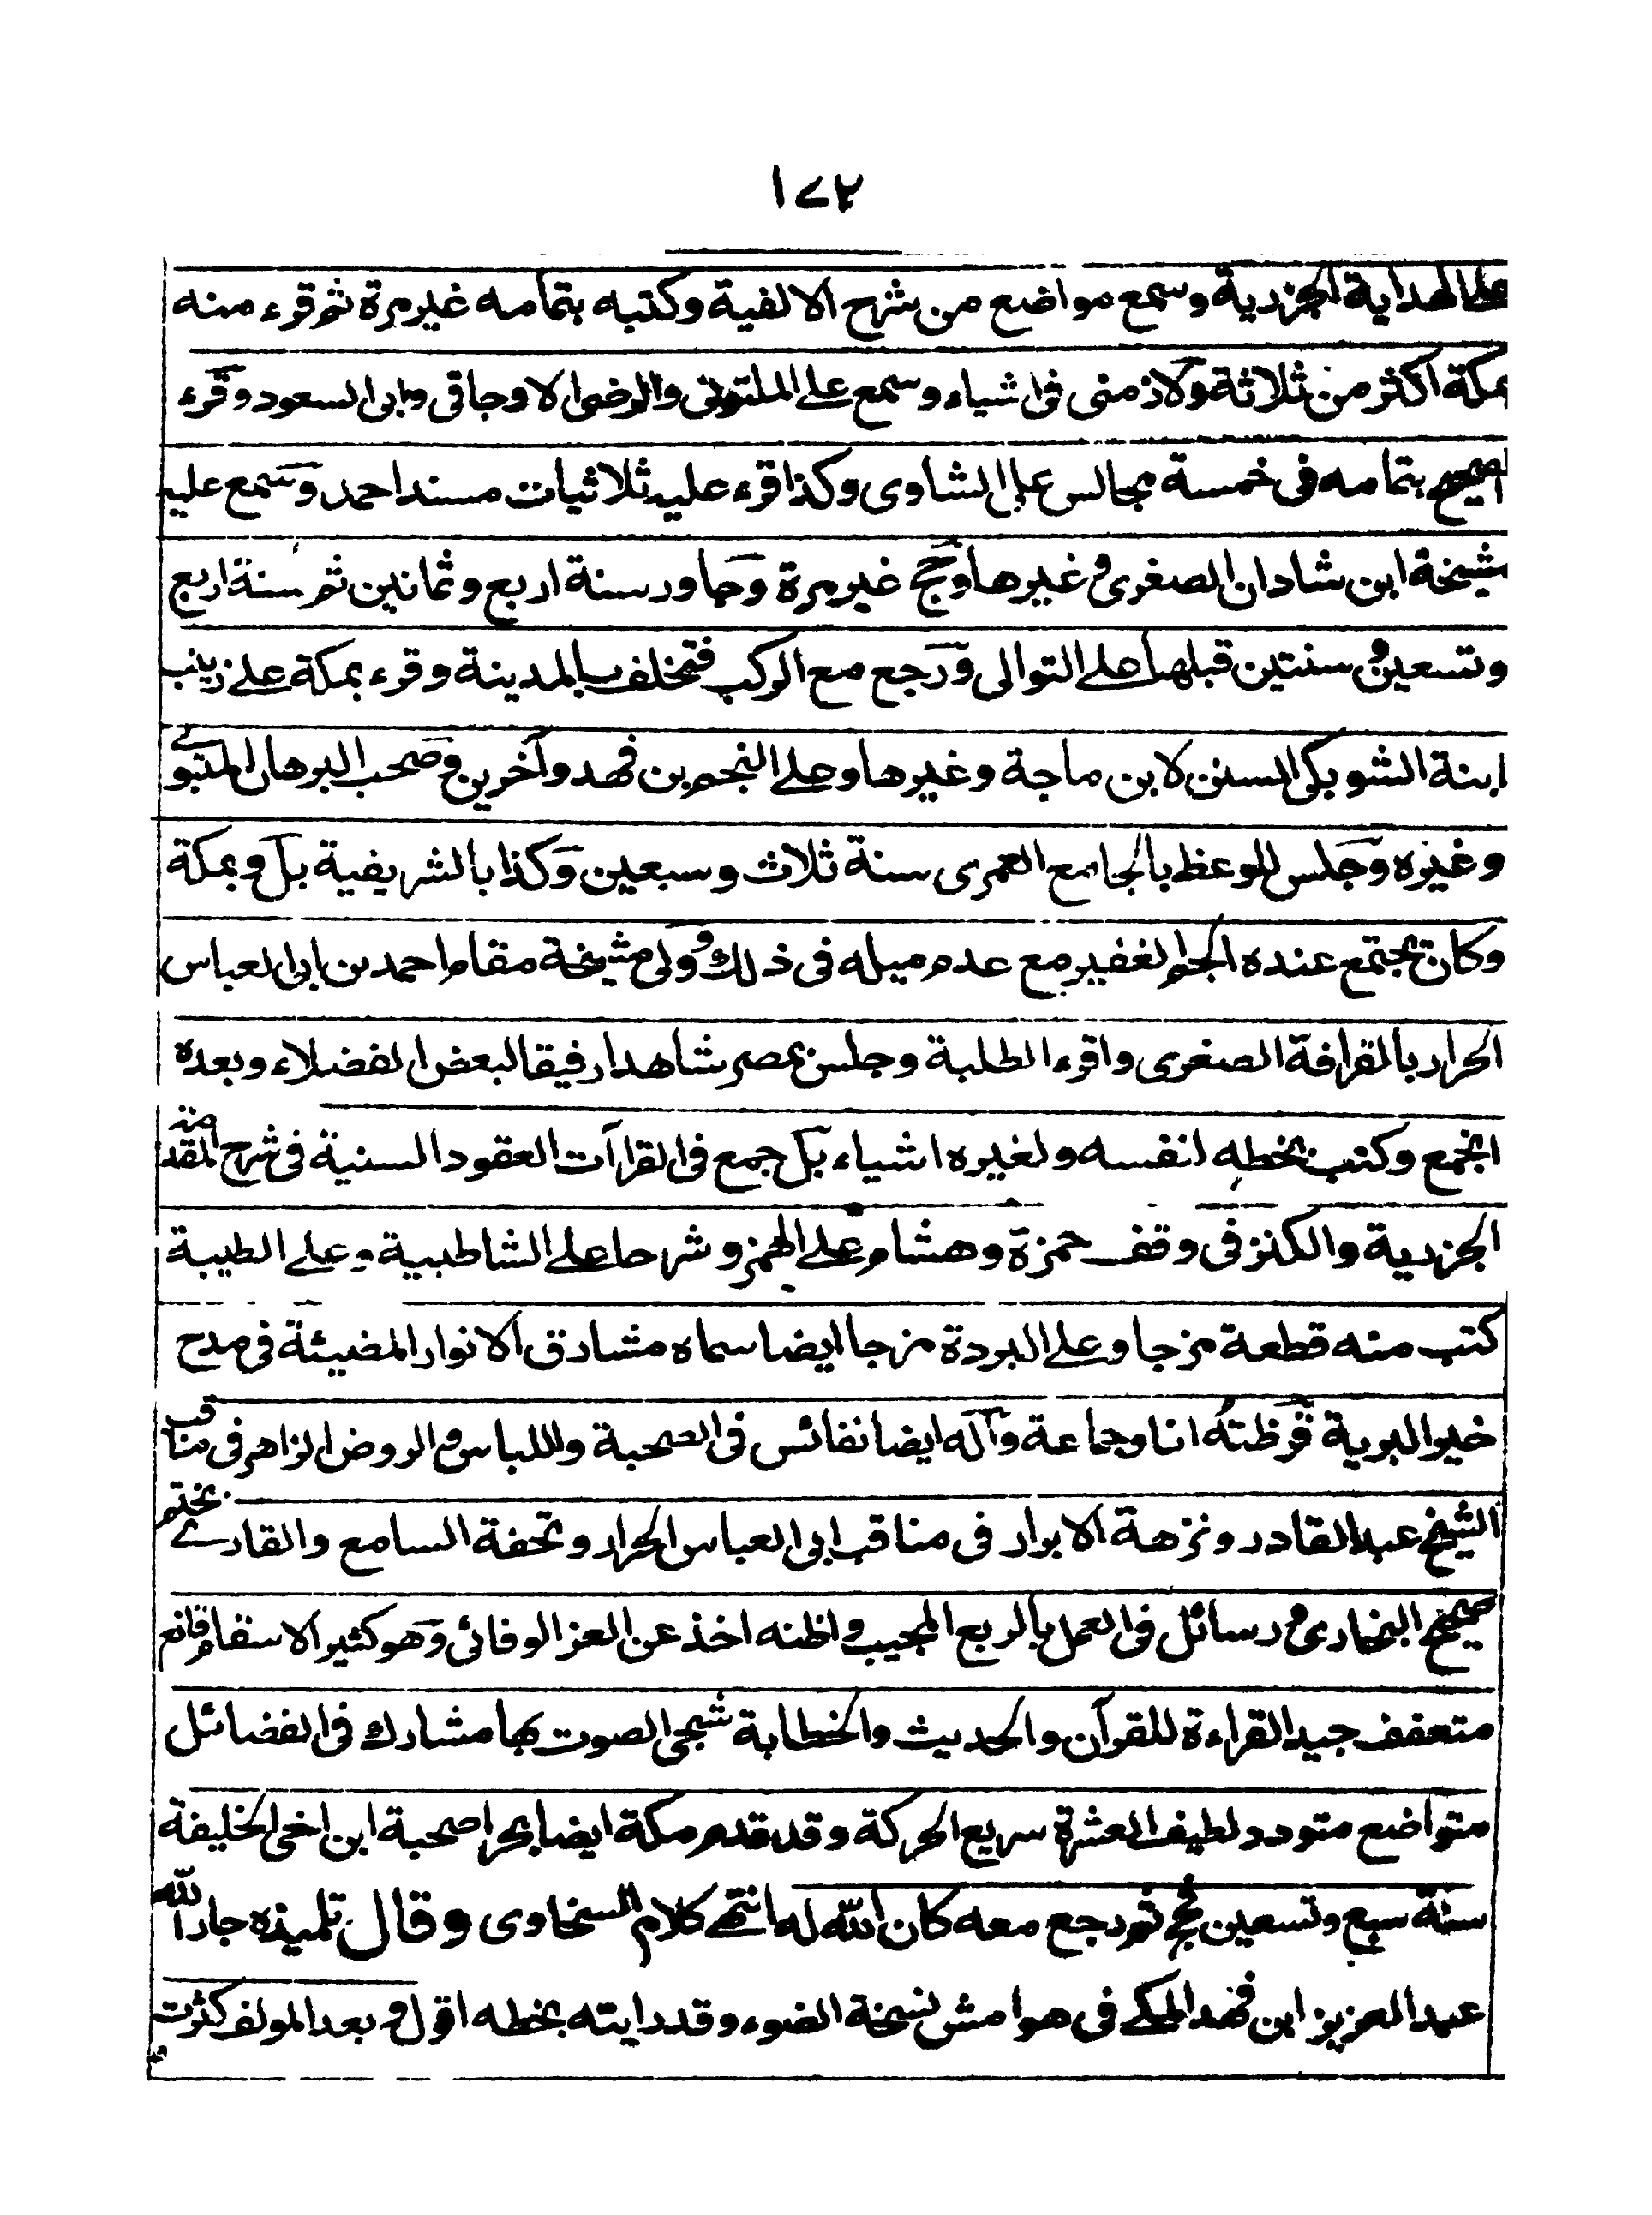 ١٧٢
على الهداية الجزرية وسمع مواضع من شرح الالفية وكتبه بتمامه غير مرة ثم قرء منه
بمكة اكثر من ثلاثة ولازمنى فى اشياء وسمع على الملتوتى والرضى الاوجاقى وابى السعود وقرء
الصحيح بتمامه فى خمسة مجالس على الشاوى وكذا قرء عليه ثلاثيات مسند احمد وسمع عليه
مشيخة ابن شادان الصغرى وغيرها وحج غير مرة وجاور سنة اربع وثمانين ثم سنة اربع
وتسعين وسنتين قبلها على التوالى ورجع مع الركب فتخلف بالمدينة وقرء بمكة على زينب
ابنة الشوبكى السنن لابن ماجة وغيرها وعلى النجم بن فهد وآخرين وصحب البرهان المتبولے
وغيره وجلس للوعظ بالجامع العمرى سنة ثلاث وسبعين وكذا بالشريفية بل وبمكة
وكان يجتمع عنده الجم الغفير مع عدم ميله فى ذلك وولى مشيخة مقام احمد بن ابى العباس
الحرار بالقرافة الصغرى واقرء الطلبة وجلس بمصر شاهدا رفيقا لبعض الفضلاء وبعده
انجمع وكتب بخطه لنفسه ولغيره اشياء بل جمع فى القراآت العقود السنية فى شرح المقدمة
الجزرية والكنز فى وقف حمزة وهشام على الهمز وشرحا على الشاطبية وعلى الطيبة
كتب منه قطعة مزجا وعلى البردة مزجا ايضا سماه مشارق الانوار المضيئة فى مدح
خير البرية قرظته انا وجماعة وله ايضا نفائس فى الصحبة واللباس والروض الزاهر فى مناقب
الشيخ عبد القادر ونزهة الابرار فى مناقب ابى العباس الحرار وتحفة السامع والقارے بختم
صحيح البخارى ورسائل فى العمل بالربع المجيب واظنه اخذ عن العز الوفائى وهو كثير الاسقام قانع
متعفف جيد القراءة للقرآن والحديث والخطابة شجى الصوت بها مشارك فى الفضائل
متواضع متودد لطيف العشرة سريع الحركة وقد قدم مكة ايضا بحرا صحبة ابن اخى الخليفة
سنة سبع وتسعين فحج ثم رجع معه كان الله له انتهى كلام السخاوى وقال تلميذه جار الله
عبد العزيز ابن فهد المكے فى هوامش نسخة الضوء وقد رايته بخطه اقول وبعد المولف كثرت